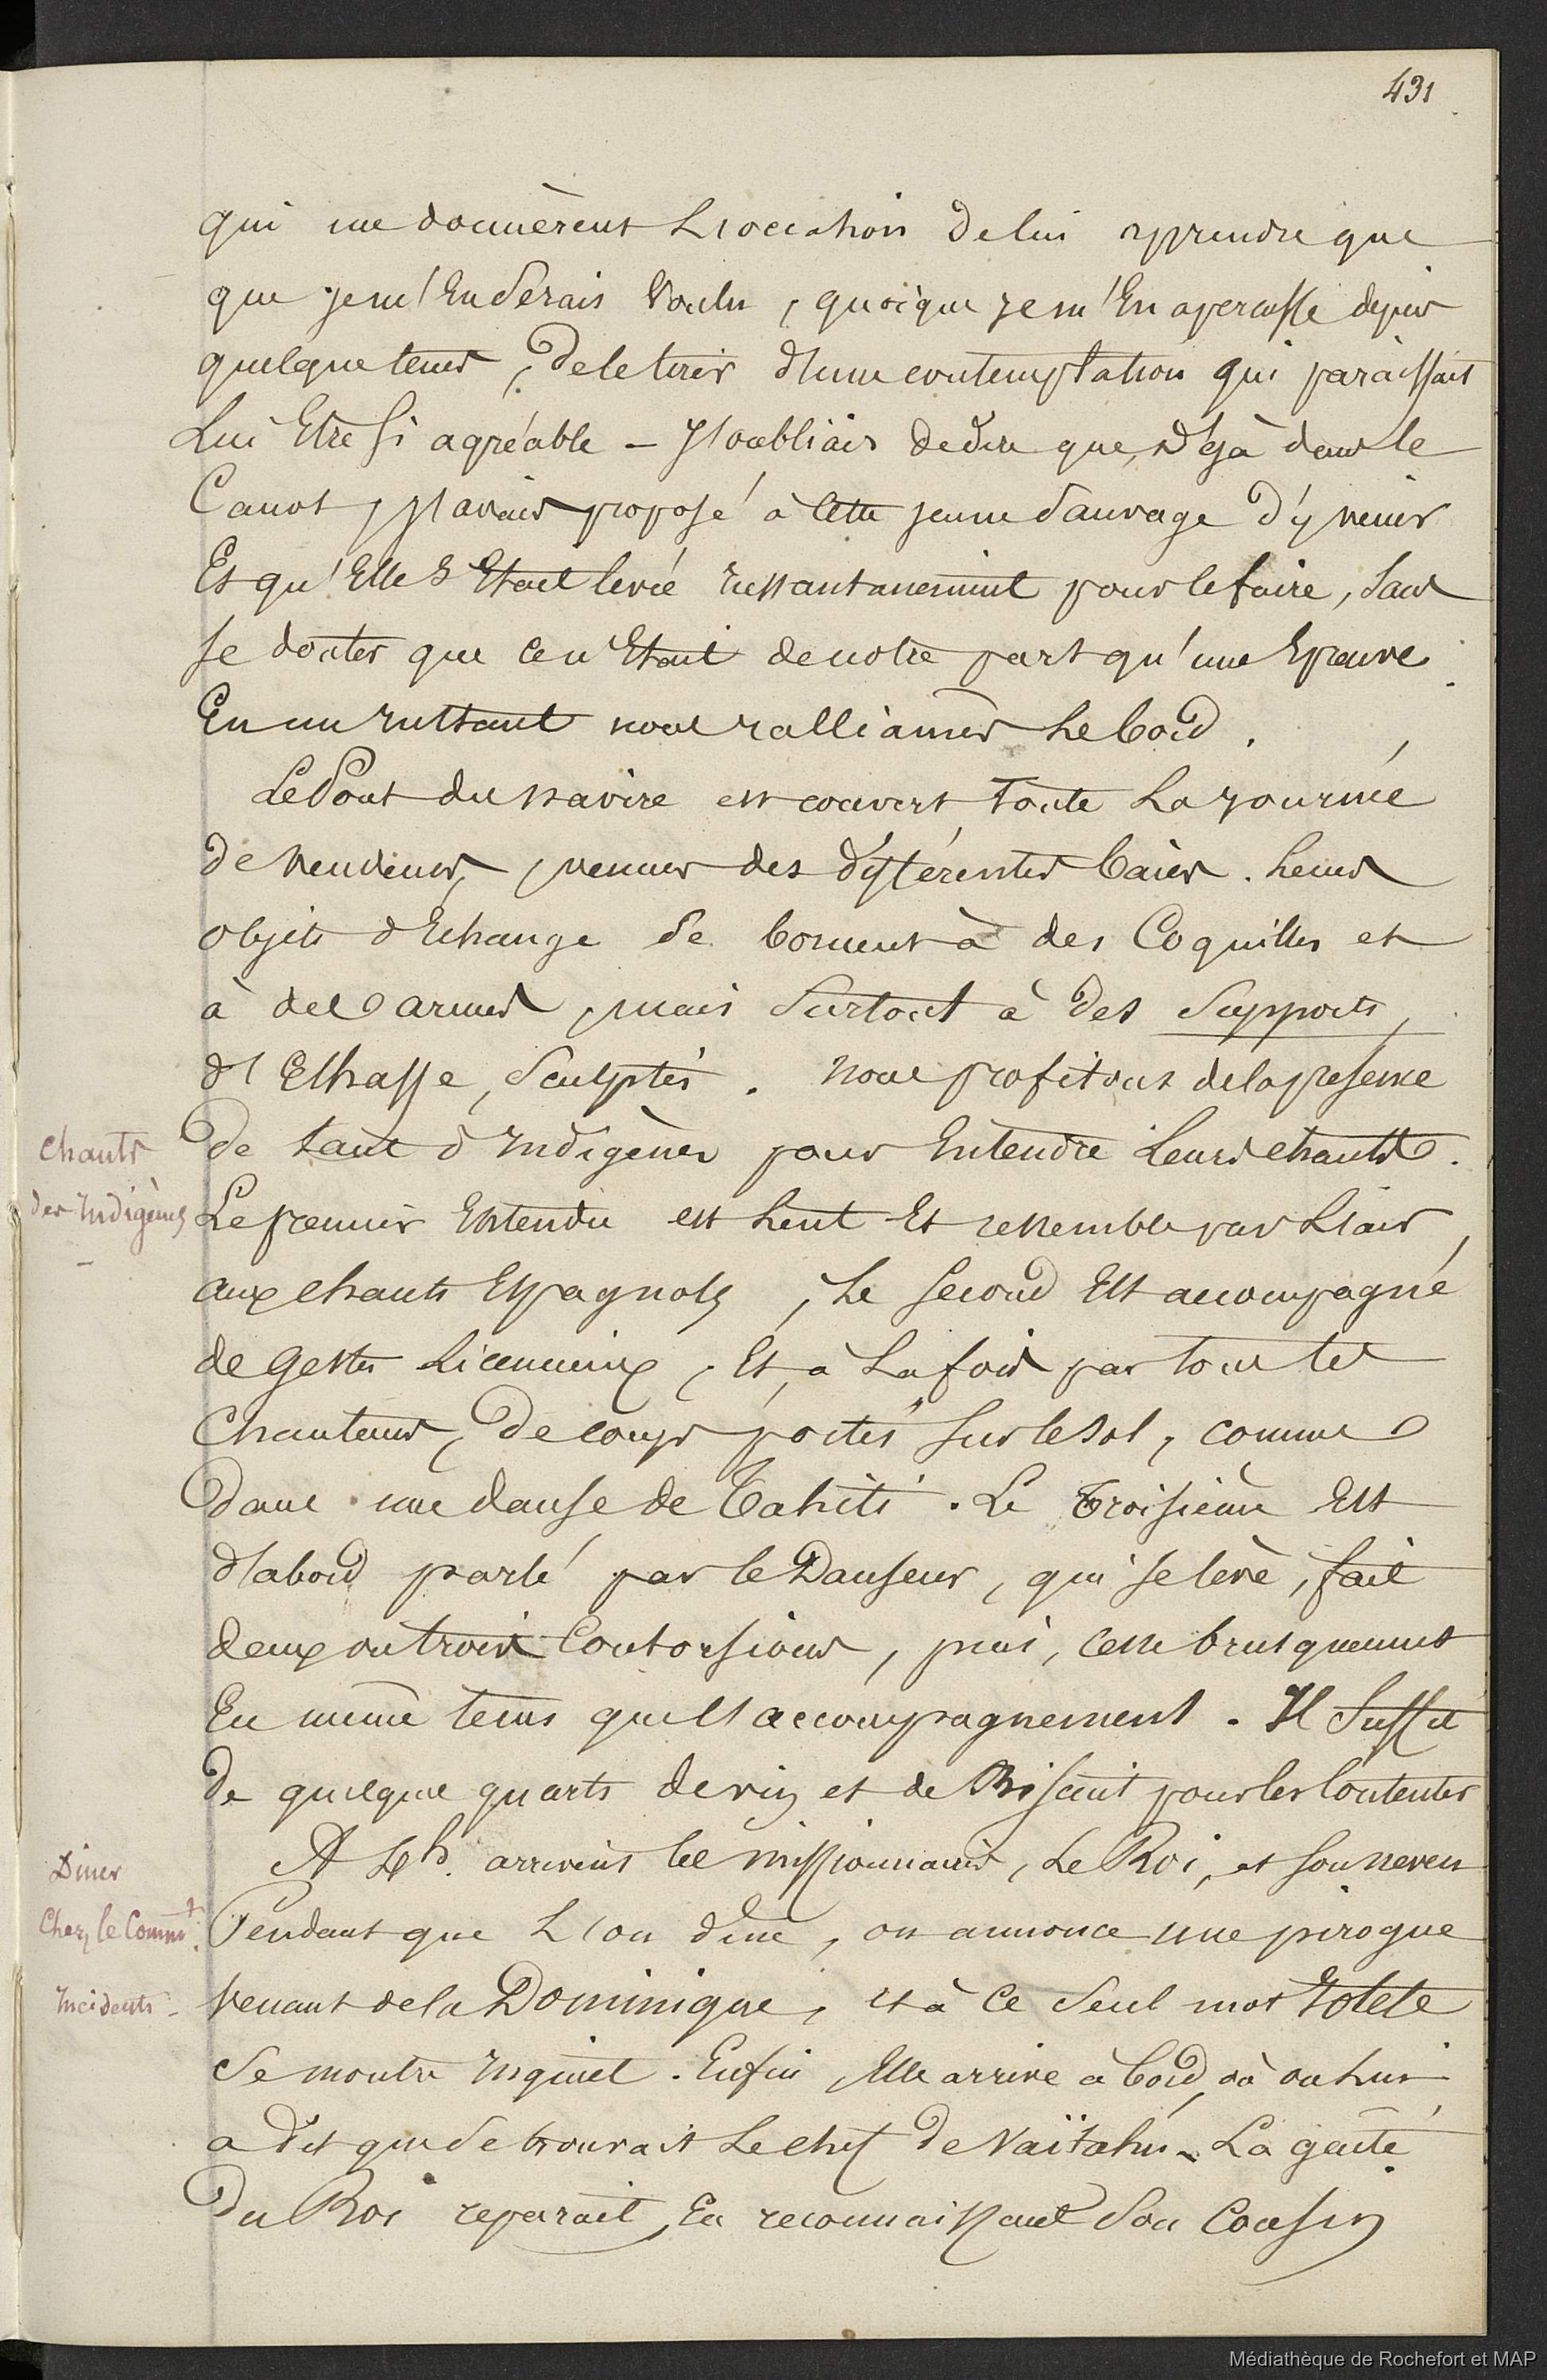 431
qui me donnèrent L'occasion de lui apprendre que
que je m'en Serais Voulu, quoique je m'en aperçusse depuis
quelque tems, de le tirer d'une contemplation qui paraissait
Lui Etre si agréable – J'oubliais de dire que, déjà dans le
Canot, j'avais proposé à cette jeune Sauvage d'y venir
Et qu'Elle s'Etait levée instantanément pour le faire, sans
se douter que ce n'Etait de notre part qu'une Epreuve.
En un instant nous ralliames Le bord.
Le Pont du navire est couvert toute La journée
de vendeurs, venus des différentes baies. Leurs
objets d'Echange se bornent à des Coquilles et
à des armes, mais Surtout à des Supports
d'Echasse, Sculptés. nous profitons de la présence
Chants
des Indigènes
–
de tant d'Indigènes pour Entendre Leurs chants.
Le premier Entendu est Lent Et ressemble par L'air,
aux chants Espagnols, Le second Est accompagné
de gestes Licencieux, Et, à La fois par tous les
Chanteurs, de coups portés sur le sol, comme
dans une danse de Tahiti. Le troisième Est
d'abord parlé par le Danseur, qui se lève, fait
deux ou trois Contorsions, puis, cesse brusquement
En même tems que l'accompagnement. Il Suffit
de quelques quarts de vin et de Biscuit pour les Contenter
Diner
Chez le Commt.
A 4h. arrivent les missionnaires, Le Roi, et son neveu
Pendant que L'on dine, on annonce une pirogue
Incidents –
venant de la Dominique, et à Ce Seul mot Yotete
Se montre inquiet. Enfin, Elle arrive à bord, où on lui
a dit que se trouvait Le chef de Vaïtahu – La gaité
du Roi reparait, En reconnaissant Son Cousin
Médiathèque de Rochefort et MAP